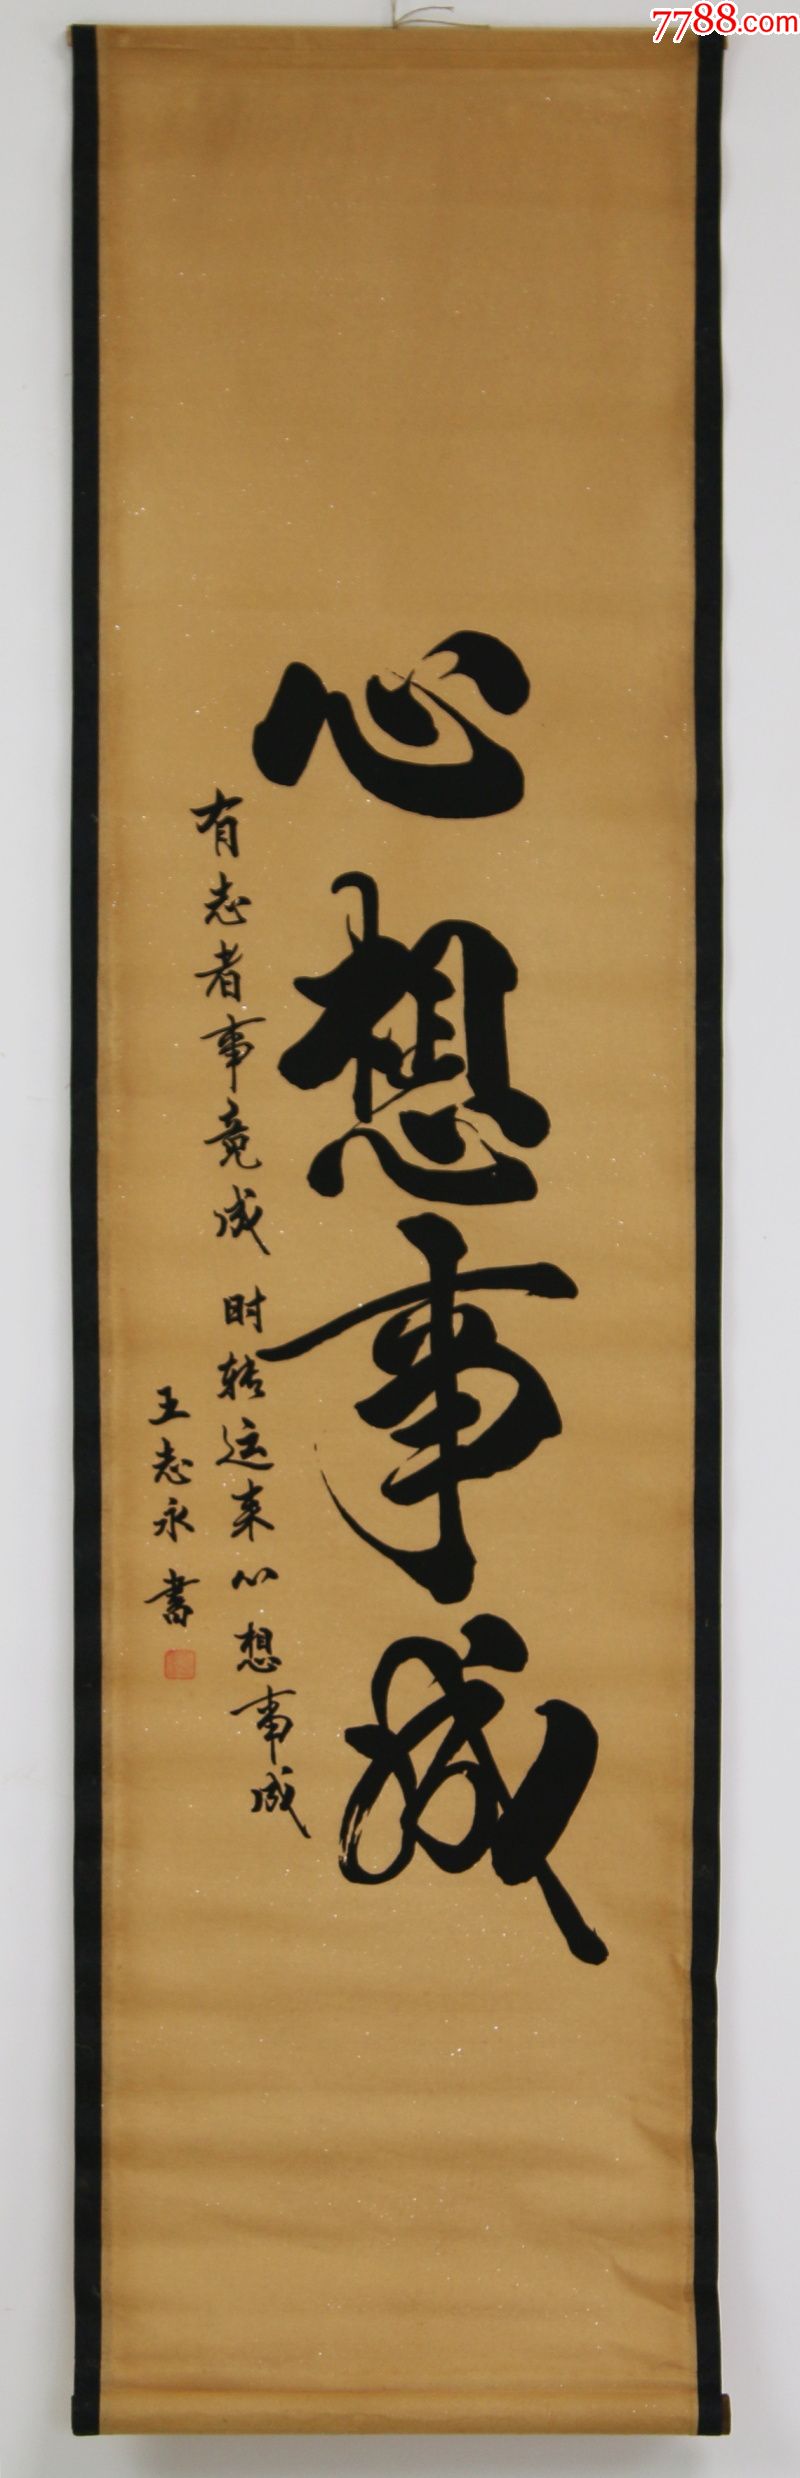 7788.com
心想事成
有志者事竟成 时转运来心想事成
王志永 書